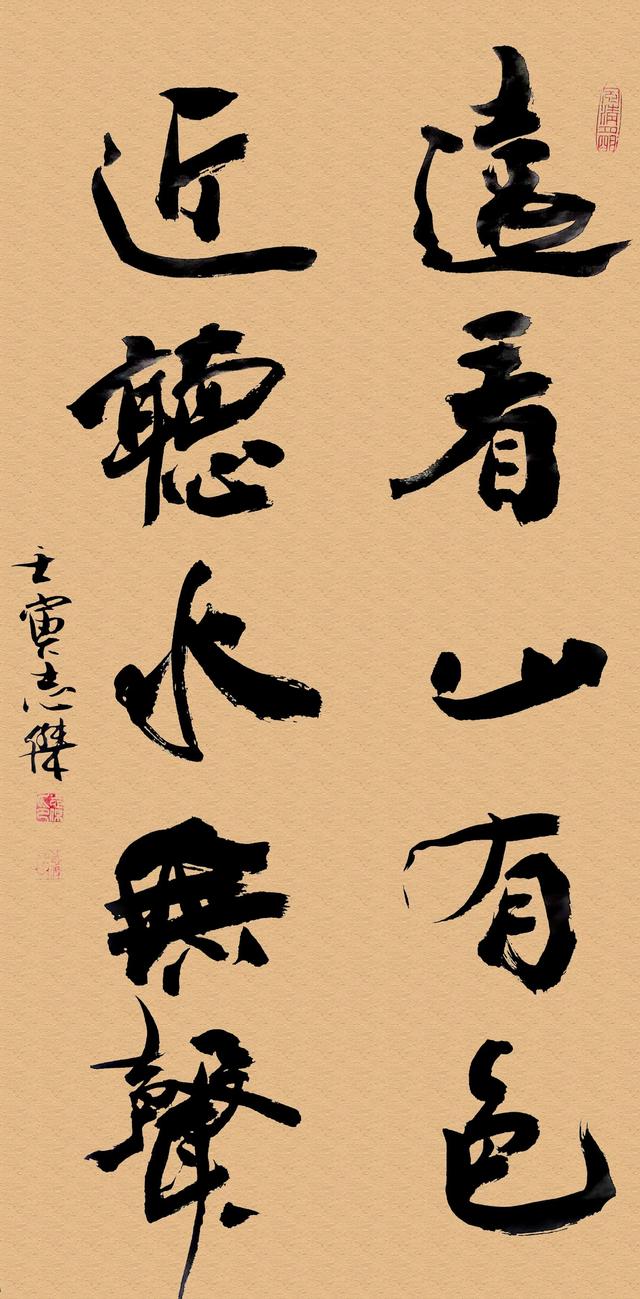 遠看山有色
近聽水無聲
壬寅志傑